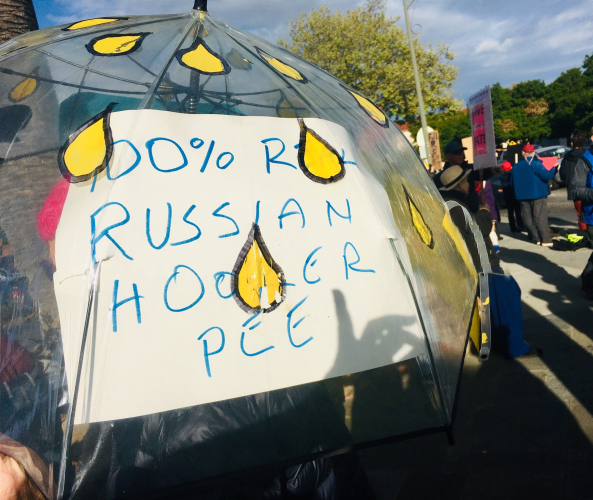 100%
RUSSIAN
HOOKER
PEE